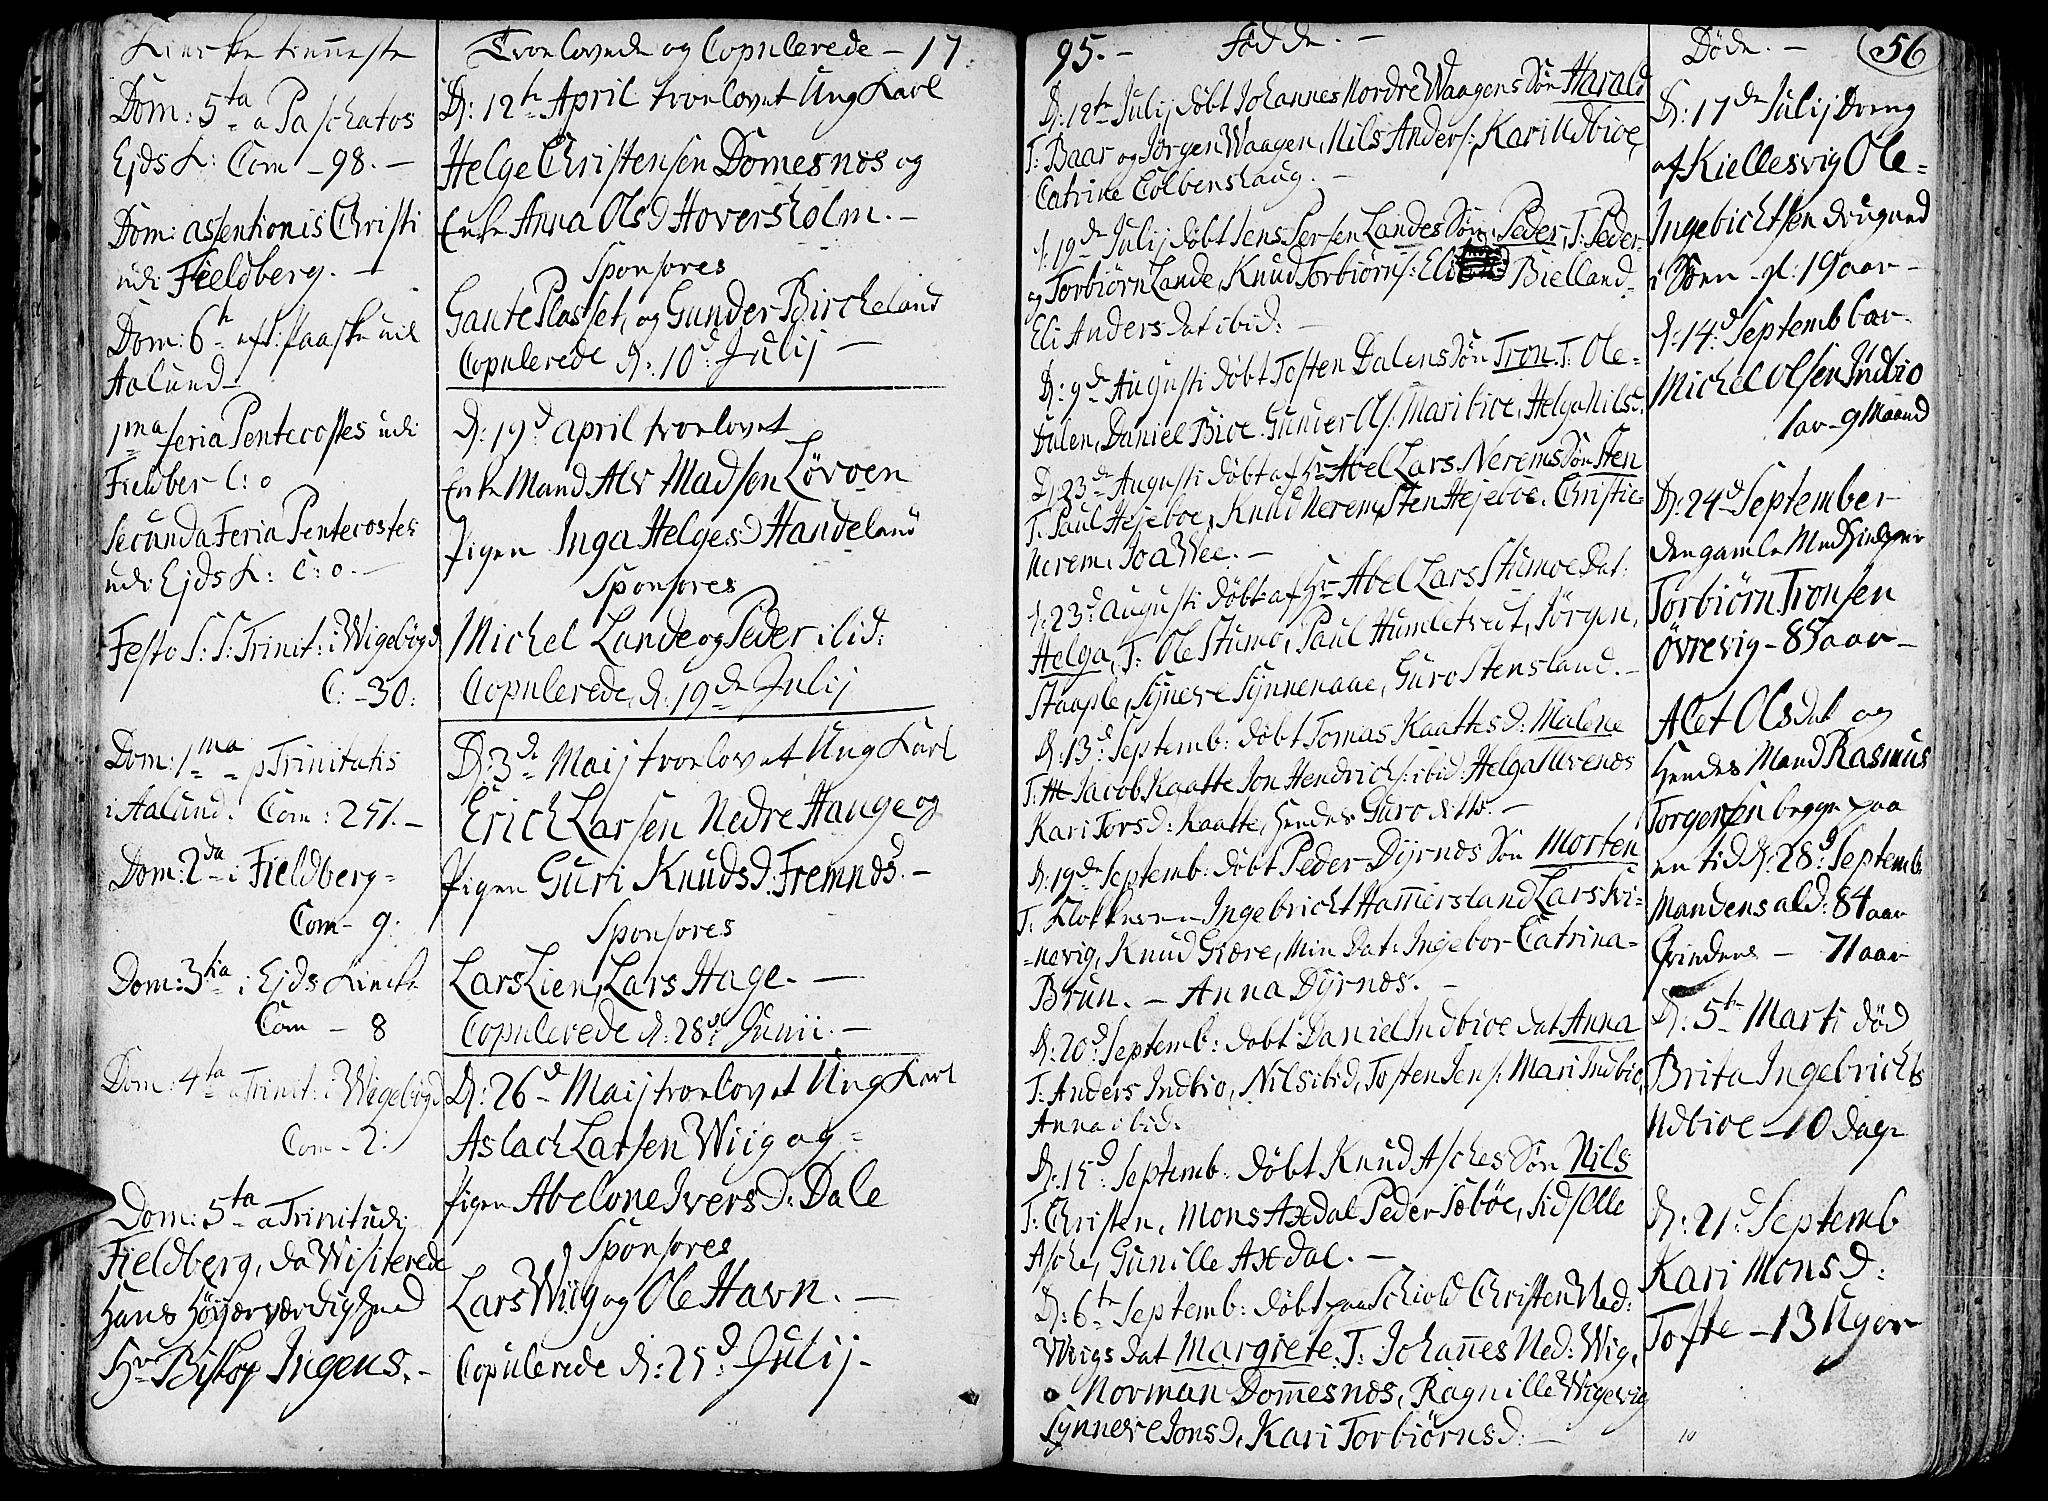 Kirke tienneste
Dom: 5ta a Paschatos
Ejds K: Com - 98. -
Dom: assentionis Christi
udi Fieldberg. -
Dom: 6te eft: Paaske udi
Aalund -
1ma feria Pentecostes udi
Fieldber C: 0
Secunda Feria Pentecostes
udi Ejds K: C: 0. -
Festo S: S: Trinit: i Wigebögd
C: - 30:
Dom: 1ma p Trinitatis
i Aalund. Com: 251. -
Dom: 2da i Fieldberg -
Com - 9.
Dom: 3tia i Ejds Kircke
Com - 8
Dom: 4ta a Trinit: i Wigebögd
Com - 2:
Dom: 5ta a Trinit udj
Fieldberg, da Wisiterede
Hans Höyærværdighed
Hr Biskop Irgens. -
Troelovede og Copulerede - 17
D: 12te April troelovet Ung Karl
Helge Christensen Domesnes og
Enke Anna Olsd Hoversholm. -
Sponsores
Gaute Plasset, og Gunder Bircheland
Copulerede d: 10d Julij -
D: 19d april troelovet
Enke Mand Alv Madsen Lövoen
Pigen Inga Helgesd Handeland
Sponsores
Michel Lande og Peder ibid:
Copulerede, d: 19de Julij
D: 3de Maij troelovet Ung Karl
Erich Larsen Nedre Hauge og
Pigen Guri Knudsd. Fremnes. -
Sponsores
Lars Lien, Lars Hage. -
Copulerede d: 28d Junii. -
D: 26d Maij troelovet Ung Karl
Aslach Larsen Wiig og -
Pigen Abelone Iversd: Dale
Sponsores
Lars Wiig og Ole Havn. -
Copulerede d: 25d Julij -
95. - Födde. -
D: 12te Julij döbt Johannes Nordre Waagens Sön Harald
T: Baar og Jörgen Waagen, Nils Anders: Kari Udbioe,
Catrine Colbenshaug. -
d: 19de Julij döbt Jens Persen Landes Sön Peder, T: Peder
og Torbiörn Lande, Knud Torbiörns: Eli Bielland -
Eli Anders dat ibid: -
D: 9de Augusti döbt Tosten Dalens Sön Tron T: Ole -
Dalen, Daniel Bioe Gunder Ols: Mari bioe, Helga Nilsd.
D: 23de Augusti döbt af Hr Abel Lars Nerems Sön Sten
T: Paul Hejeboe, Knud Nerem, Sten Hejeboe, Christie -
Nerem, Joa Wee. -
d: 23d augusti döbt af Hr Abel Lars Stumoe Dat:
Helga, T: Ole Stumo, Paul Humletvedt, Jörgen,
Staaple, Syneve Synnenaae, Guro Stensland. -
D: 13d Septemb: döbt Tomas Kaattes d: Malene
T: Jacob Kaatte Jon Hendrichs: ibid: Helga Ulvenes
Kari Torsd: Kaatte, Guro
D: 19de Septemb: döbt Peder Dyrnes Sön Morten
T: Klokkeren Ingebricht Hamersland Lars Kvi -
nevig, Knud Giære, Min Dat: Ingebor - Catrina -
Brun. - Anna Dyrnes. -
D: 20d Septemb: döbt Daniel Indbioe dat Anna
T: Anders Indbio, Nils ibid, Tosten Jens: Mari Indbio,
Anna ibid.
D: 15d Septemb: döbt Knud Asches Sön Nils
T: Christen, Mons Axdal Peder Sæböe, Sidselle
Asche, Gunille Axdal. -
D: 6te Septemb: döbt paa Schiold Christen Ned:
Wiigs dat Margrete: T: Johannes Ned: Wig,
Norman Domesnes, Ragnille Wigevig
Synneve Jonsd, Kari Torbiörnsd: -
Döde. - 56
D: 17de Julij Dreng
af Kiellesvig Ole -
Ingebichtsen drugned
i Söen - gl: 19 aar -
d: 14d September
Michel Olsen Indbio
1 aar - 9 Maaned
D: 24d September
den gamle
Torbiörn Tronsen
Övrevig - 85 aar -
Alet Olsdat og
Hendes Mand Rasmus
Torgersen begge paa
en tid D: 28d Septemb
Mandens ald: 84 aar
Qvindens - 71 aar
D: 5te Marti död
Brita Ingebrichts
Udbioe - 10 dage
D: 21d Septemb
Kari Monsd:
Tofte - 13 Uger
10